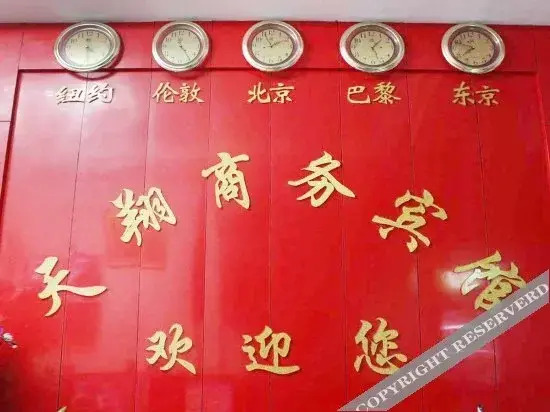 纽约 伦敦 北京 巴黎 东京
天翔商务宾馆
欢迎您
COPYRIGHT RESERVERD